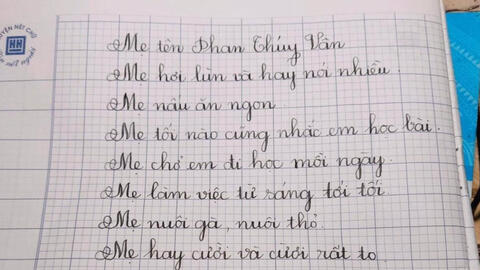 Mẹ tên Phan Thúy Vân
Mẹ hơi lùn và hay nói nhiều.
Mẹ nấu ăn ngon
Mẹ tối nào cũng nhắc em học bài.
Mẹ chở em đi học mỗi ngày.
Mẹ làm việc từ sáng tới tối
Mẹ nuôi gà, nuôi thỏ.
Mẹ hay cười và cười rất to